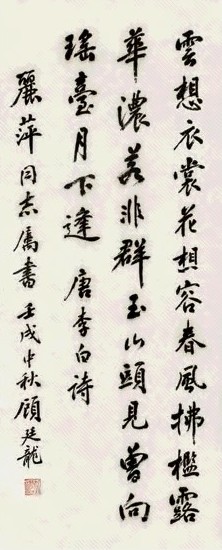 雲想衣裳花想容春風拂檻露
華濃若非群玉山頭見會向
瑤臺月下逢 唐李白詩
麗萍同志屬書 壬戌中秋顧廷龍